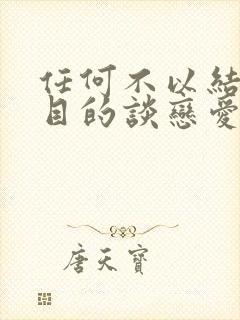 任何不以結
目的談戀愛
唐天寶